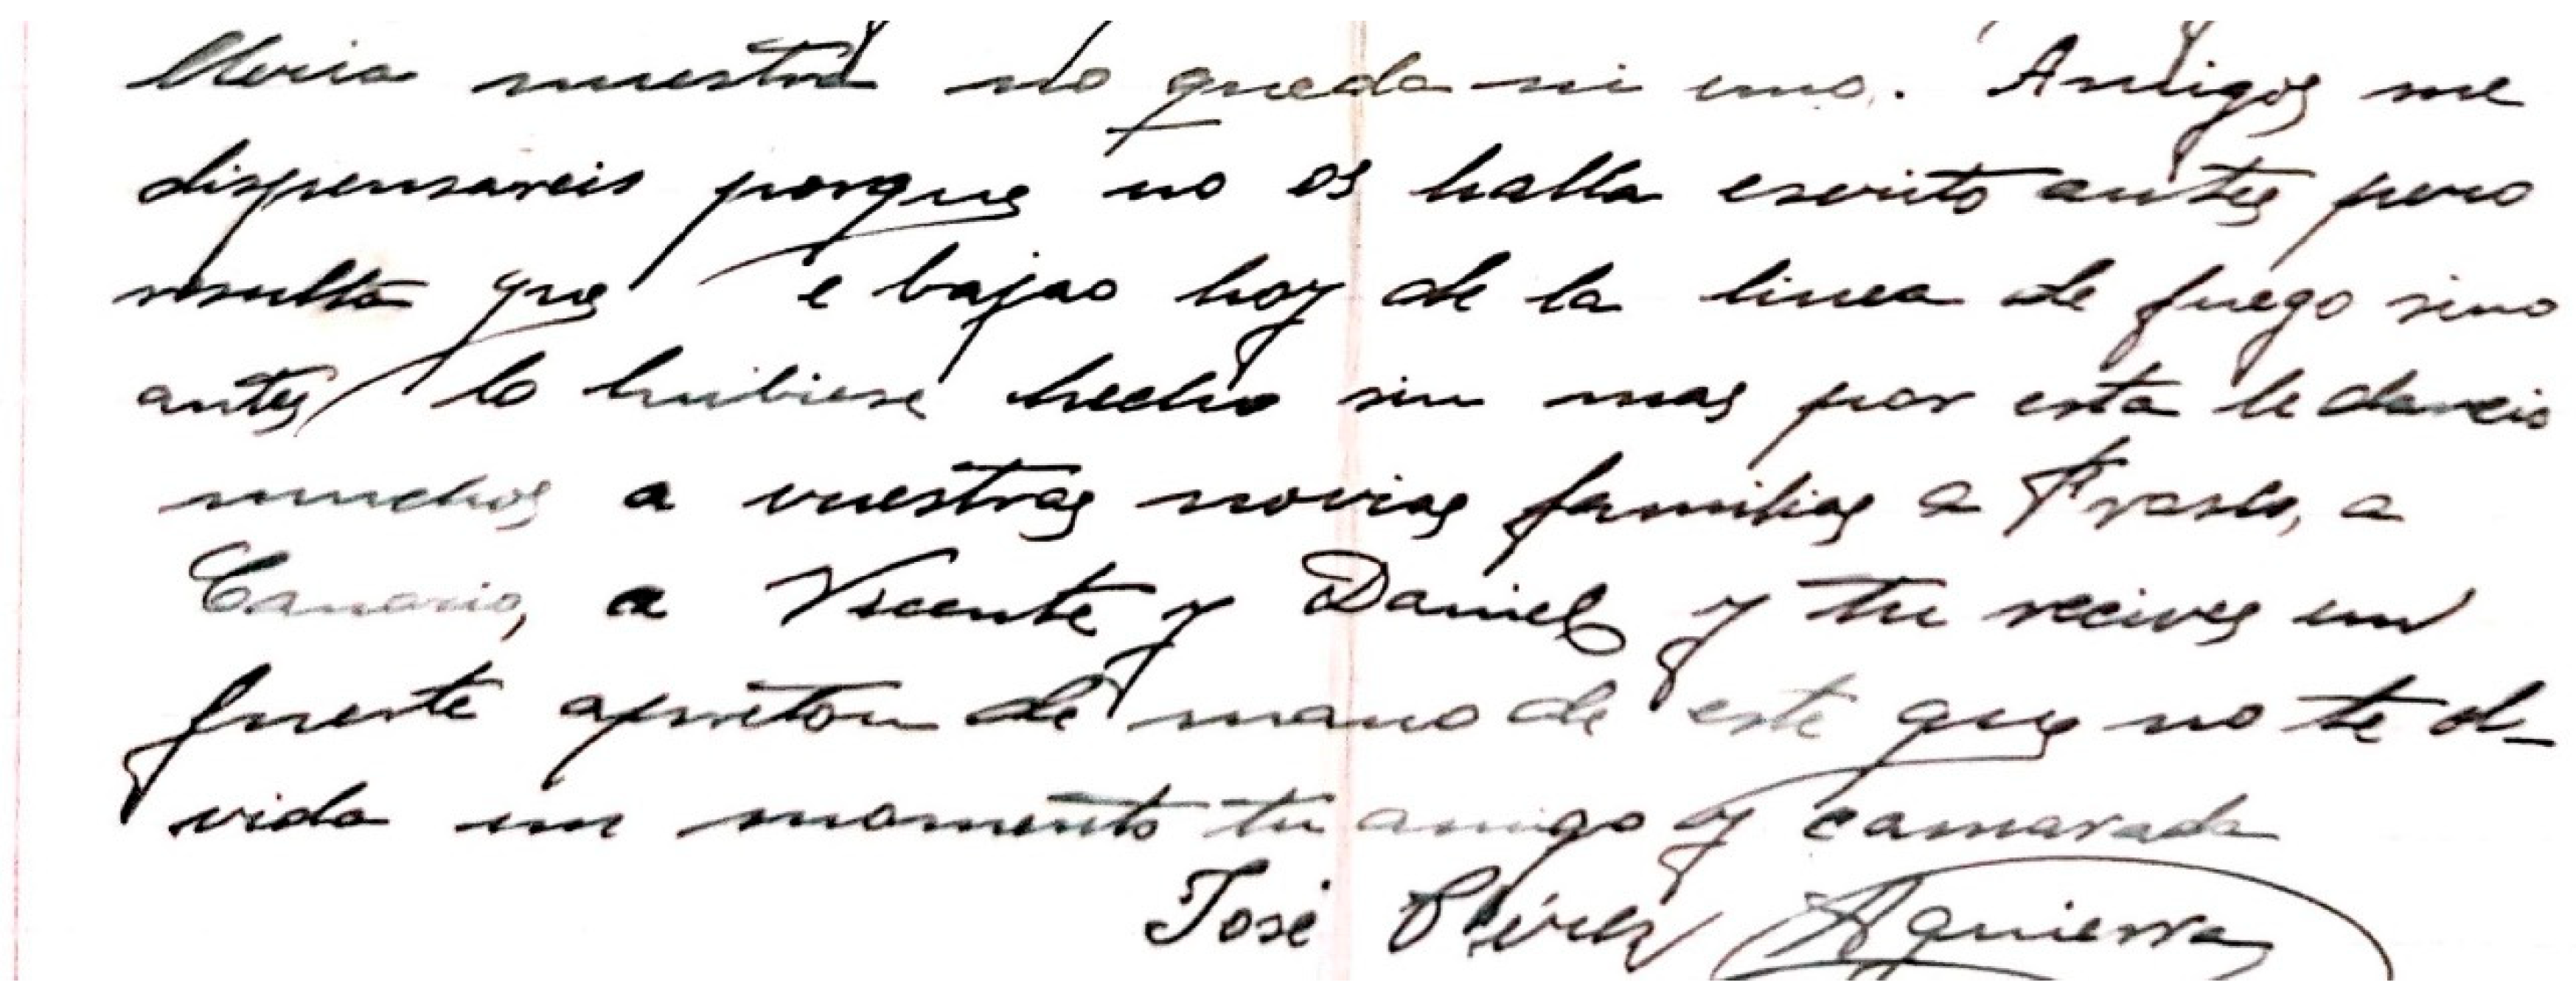 lleria nuestra no queda ni uno. Amigos me
dispensareis porque no os halla escrito antes pero
resulta que e bajao hoy de la linea de fuego sino
antes lo hubiese hecho sin mas por esta le dareis
muchos a vuestras novias familias a a
Canario, a Vicente y Daniel y tu recives un
fuerte apreton de mano de este que no te ol-
vida un momento tu amigo y camarada
José Pérez Aguierra